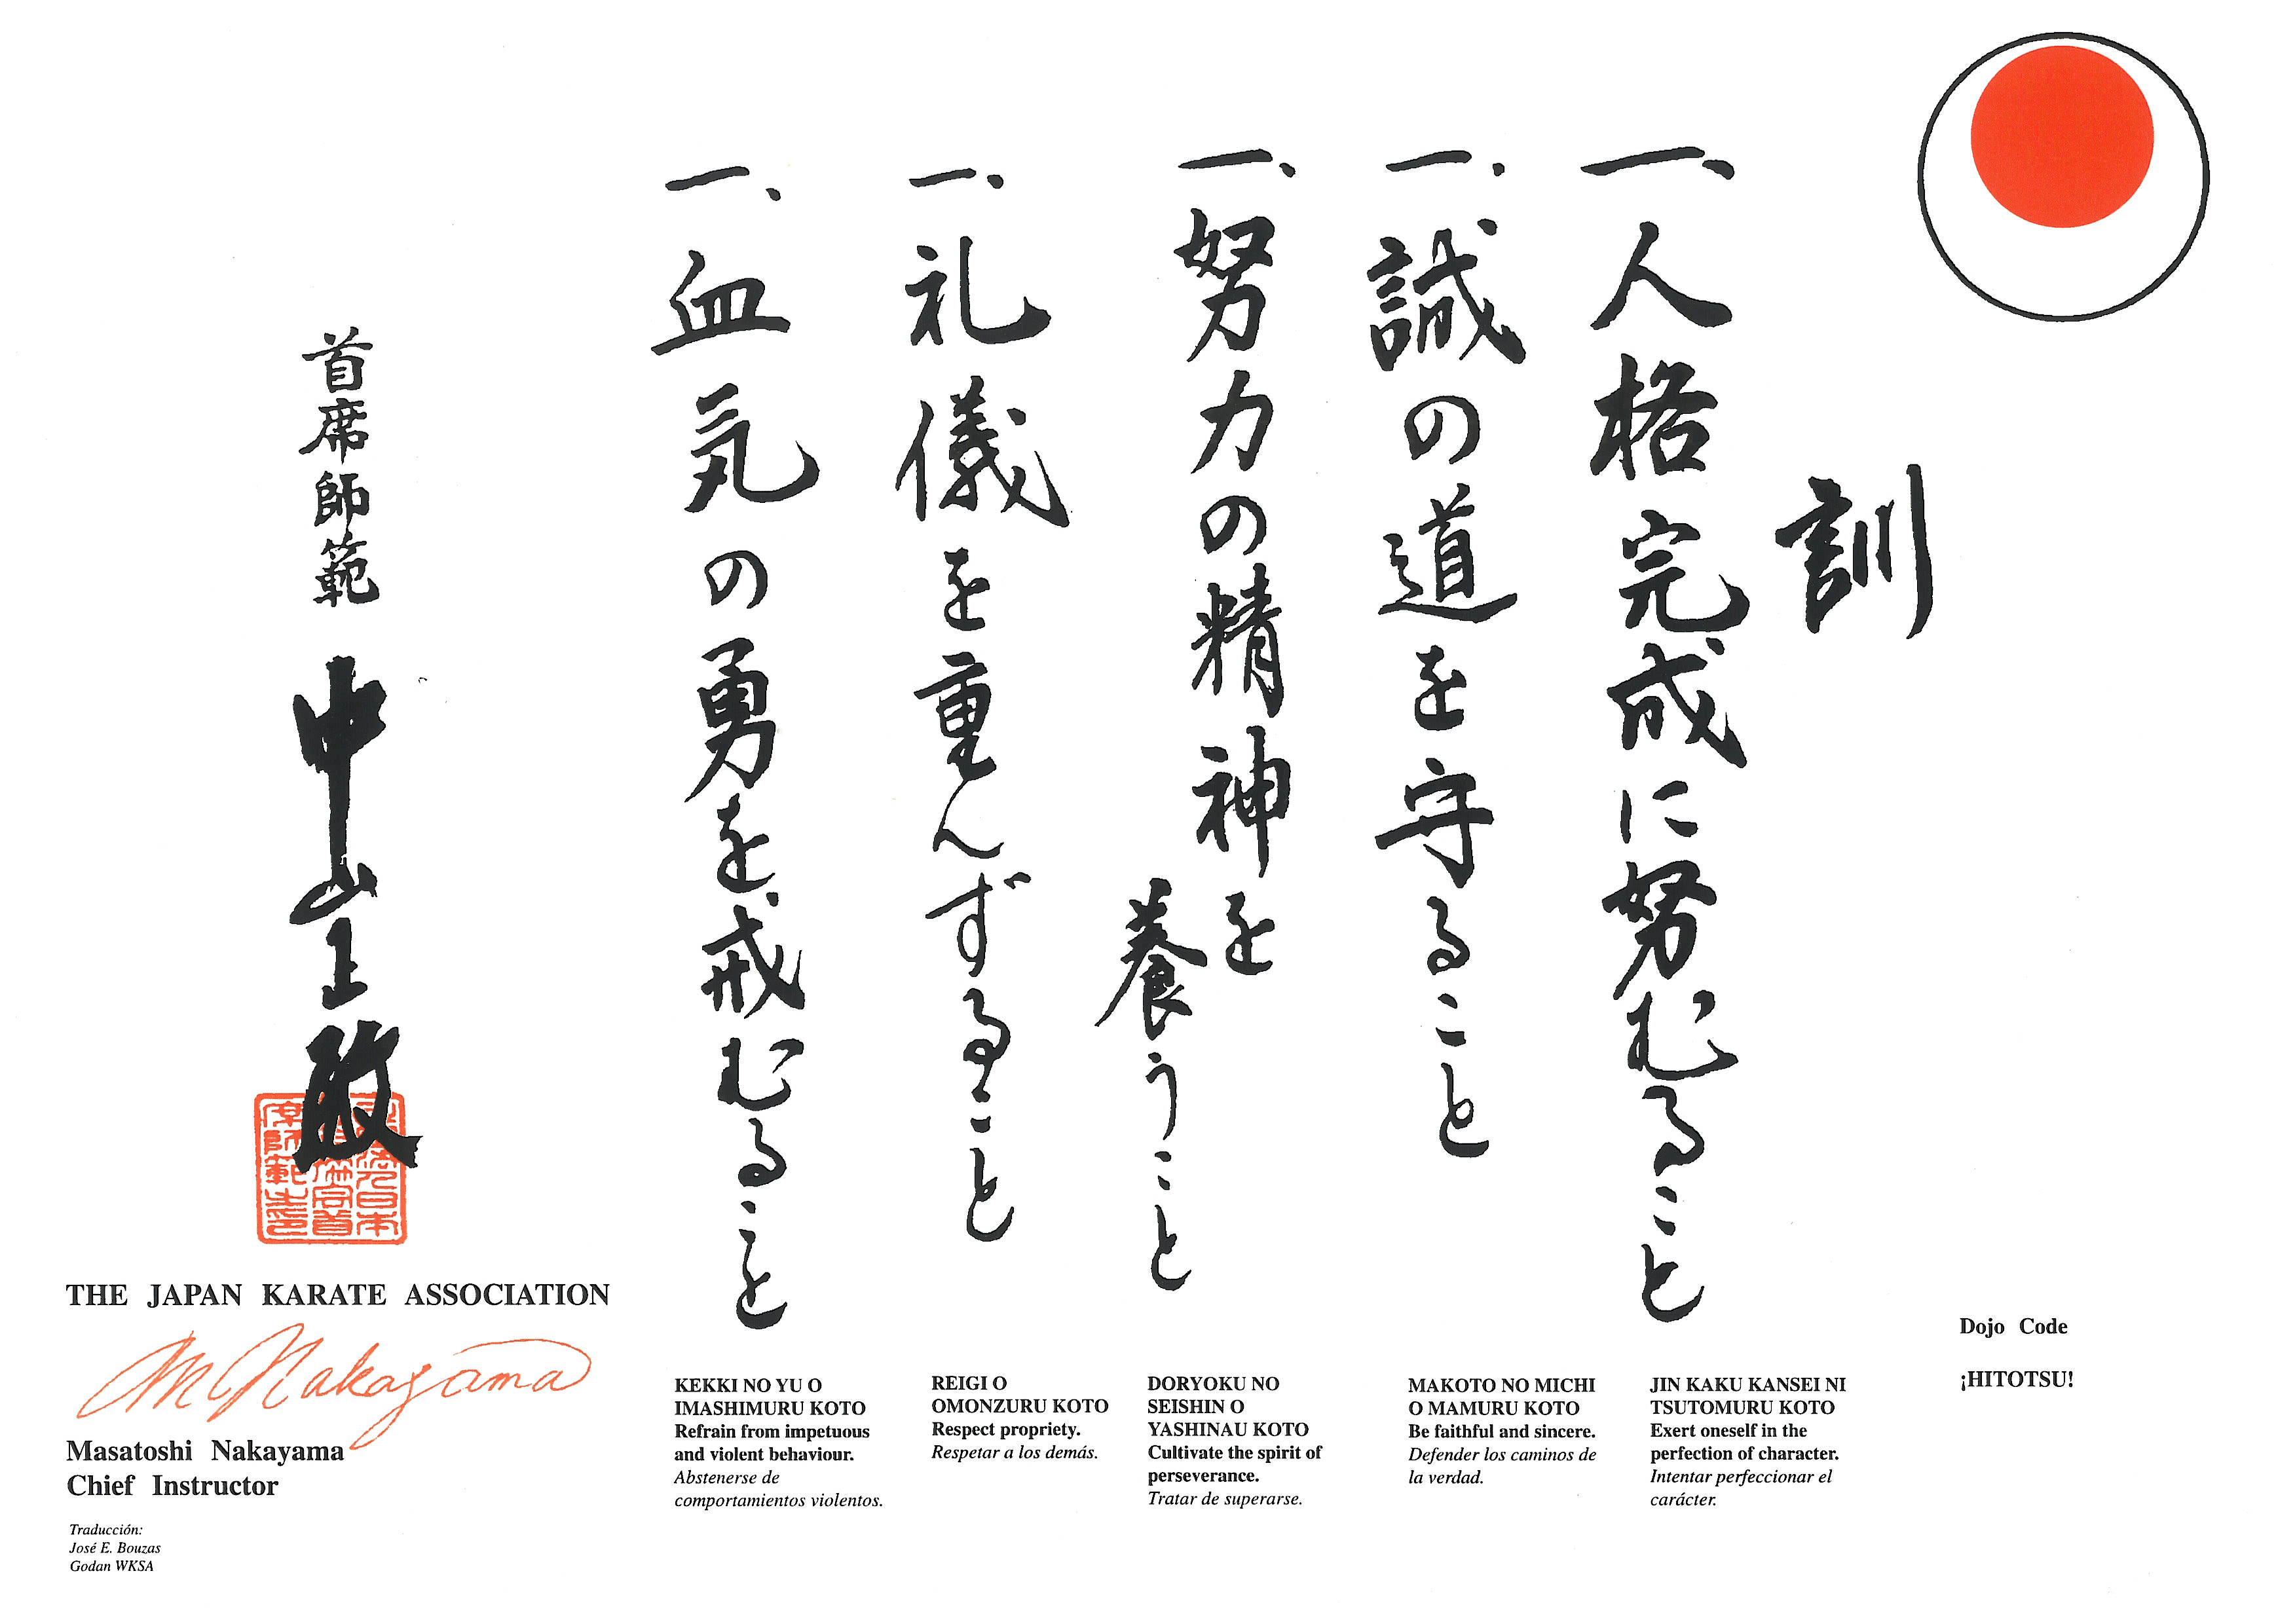 訓
一、人格完成に努むること
一、誠の道を守ること
一、努力の精神を
養うこと
一、礼儀を重んずること
一、血気の勇を戒むること
首席師範
中山正敏
Dojo Code
¡HITOTSU!
JIN KAKU KANSEI NI
TSUTOMURU KOTO
Exert oneself in the
perfection of character.
Intentar perfeccionar el
carácter.
MAKOTO NO MICHI
O MAMURU KOTO
Be faithful and sincere.
Defender los caminos de
la verdad.
DORYOKU NO
SEISHIN O
YASHINAU KOTO
Cultivate the spirit of
perseverance.
Tratar de superarse.
REIGI O
OMONZURU KOTO
Respect propriety.
Respetar a los demás.
KEKKI NO YU O
IMASHIMURU KOTO
Refrain from impetuous
and violent behaviour.
Abstenerse de
comportamientos violentos.
THE JAPAN KARATE ASSOCIATION
M Nakayama
Masatoshi Nakayama
Chief Instructor
Traducción:
José E. Bouzas
Godan WKSA